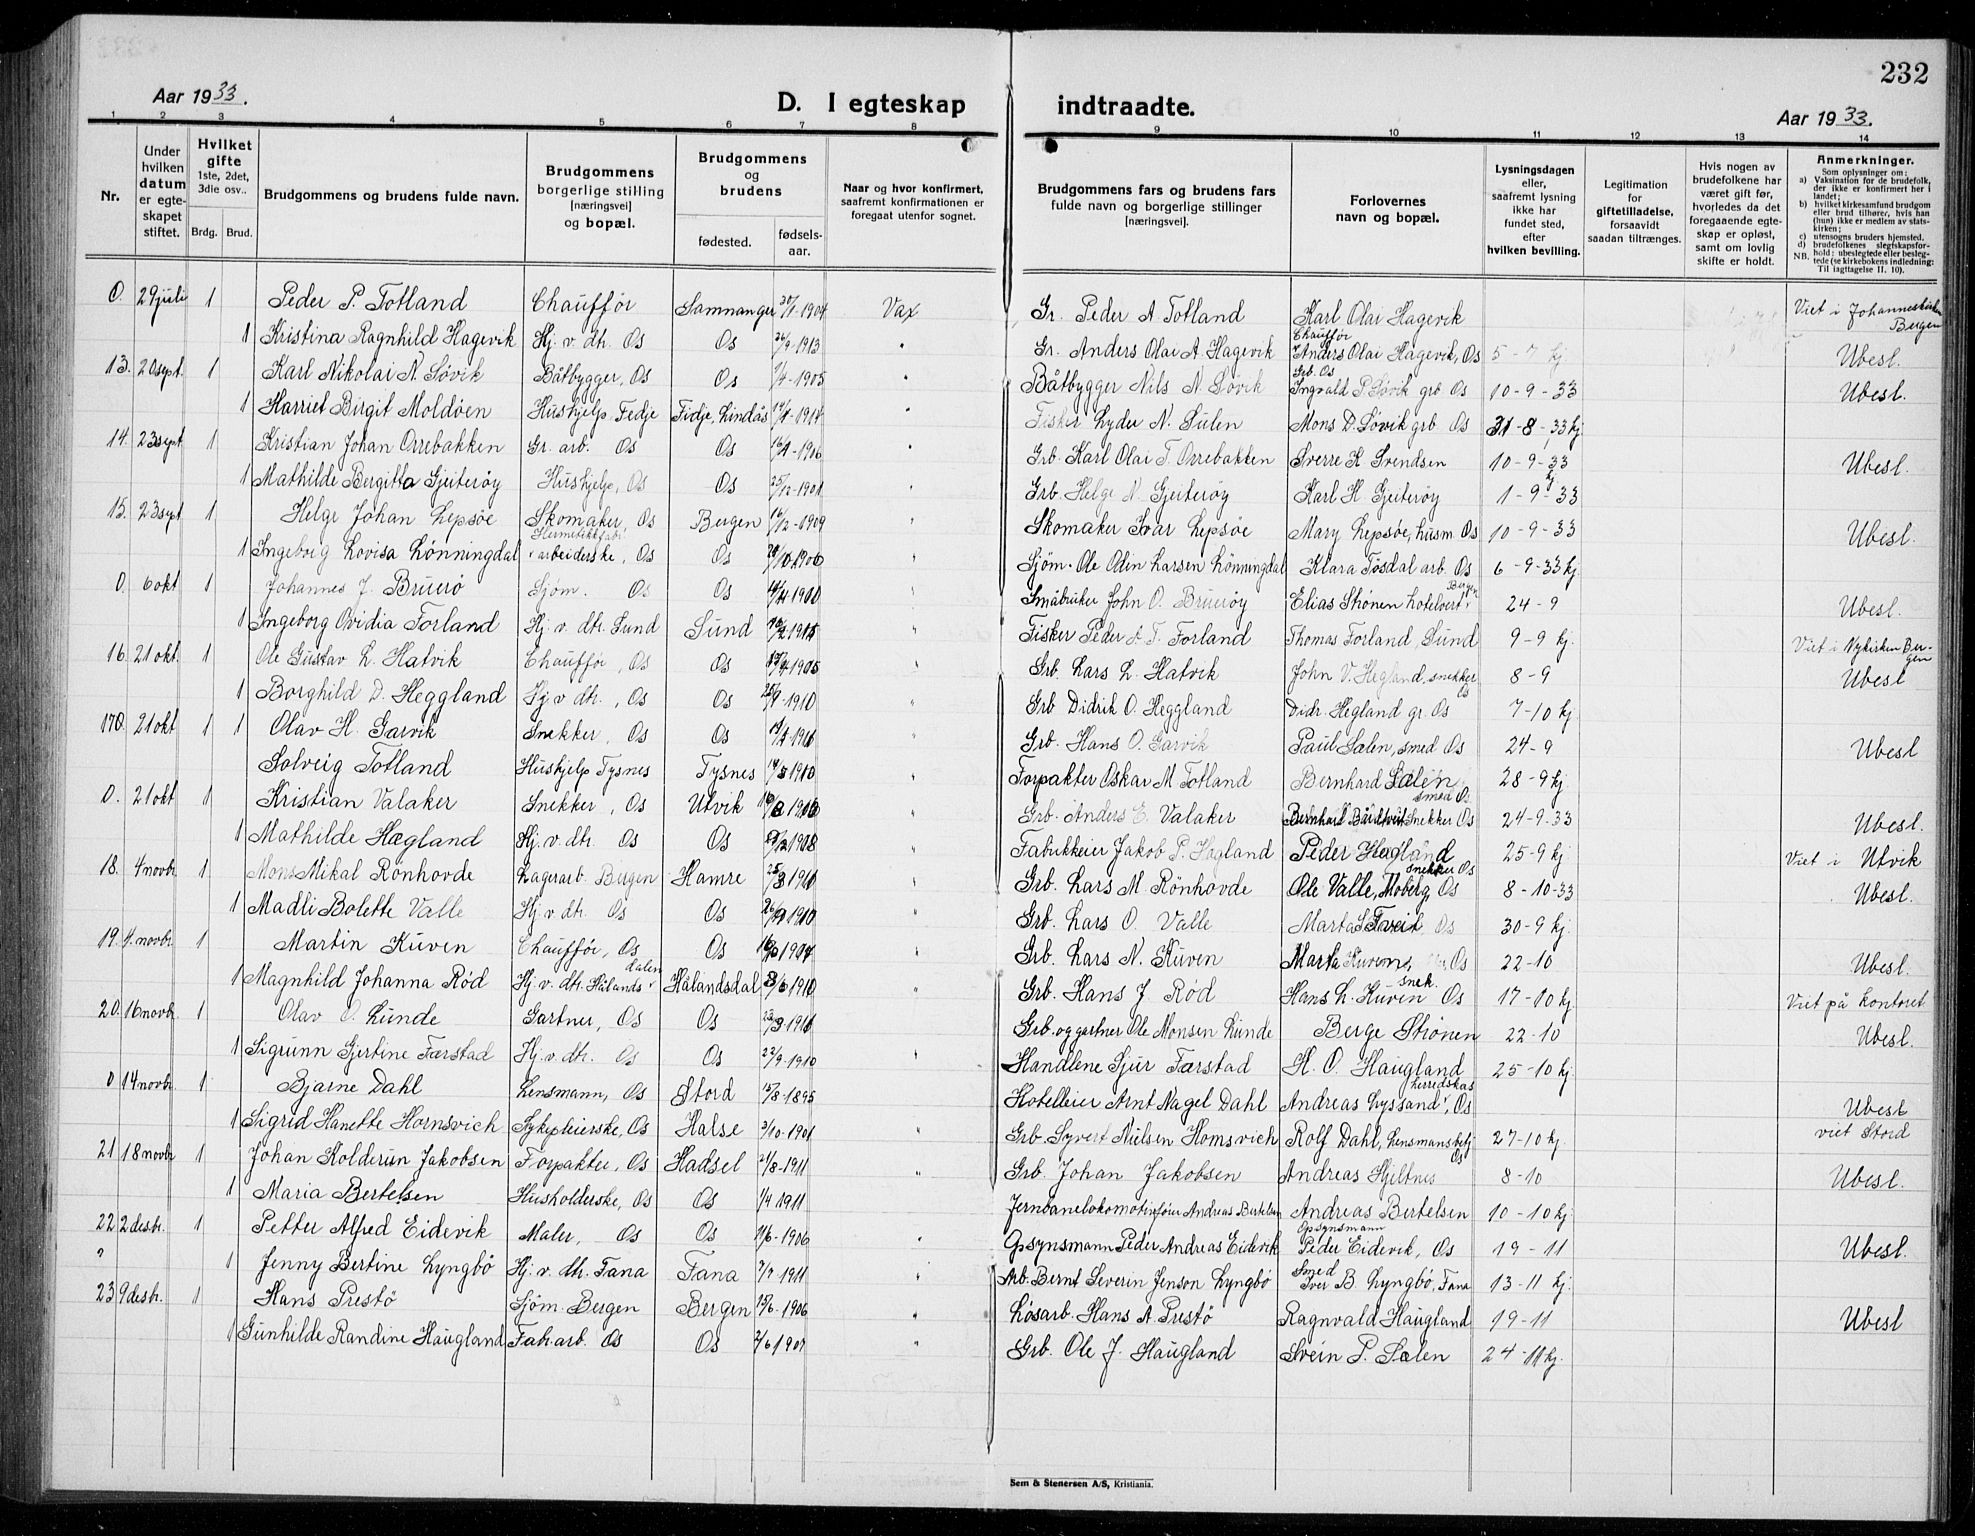 232
Aar 1933.
D. I egteskap indtraadte.
Aar 1933.
1 2 3 4 5 6 7 8 9 10 11 12 13 14
Nr.
Under hvilken datum er egte-skapet stiftet.
Hvilket gifte 1ste, 2det, 3die osv..
Brdg. Brud.
Brudgommens og brudens fulde navn.
Brudgommens borgerlige stilling [næringsvei] og bopæl.
Brudgommens og brudens
fødested. fødsels-aar.
Naar og hvor konfirmert, saafremt konfirmationen er foregaat utenfor sognet.
Brudgommens fars og brudens fars fulde navn og borgerlige stillinger [næringsvei].
Forlovernes navn og bopæl.
Lysningsdagen eller, saafremt lysning ikke har fundet sted, efter hvilken bevilling.
Legitimation for giftetilladelse, forsaavidt saadan tiltrænges.
Hvis nogen av brudefolkene har været gift før, hvorledes da det foregaaende egte-skap er opløst, samt om lovlig skifte er holdt.
Anmerkninger.
Som oplysninger om:
a) Vaksination for de brudefolk, der ikke er konfirmert her i landet;
b) hvilket kirkesamfund brudgom eller brud tilhører, hvis han (hun) ikke er medlem av stats-kirken;
c) utensogns bruders hjemsted.
d) brudefolkenes slegtskapsfor-hold; ubeslegtede eller besleg-tede (se kirkebokens indledning: NB. Til iagttagelse II. 10).
0. 29 juli 1 Peder P. Totland Chauffør Samnanger 30/1-1904 Vax Gr. Peder A Totland Karl Olai Hagevik Viet i Johanneskirken Bergen
1 Kristina Ragnhild Hagevik Hj. v. dtr. Os Os 26/9-1913 " Gr. Anders Olai A. Hagevik Chauffør Anders Olai Hagevik, Os 5-7 kj Ubesl.
13. 20 sept. 1 Karl Nikolai N. Søvik Båtbygger, Os Os 7/4-1905 " Båtbygger Nils N. Søvik Grb. Os Ingvald P. Søvik grb Os 10-9-33 Ubesl.
1 Harriet Birgit Moldøen Hushjelp Fedje Fidje, Lindås 1914 " Fisker Lyder N. Sulen Mons D. Søvik grb Os 31-8-33 kj
14. 23 sept 1 Kristian Johan Orrebakken Gr. arb. Os Os 1906 " Grb. Karl Olai T. Orrebakken Sverre K Svendsen 10-9-33 Ubesl.
1 Mathilde Bergitta Gjeiterøy Hushjelp, Os Os 25/12-1901 " Grb. Helge N. Gjeiterøy Karl H. Gjeiterøy 1-9-33 kj
15. 23 sept 1 Helge Johan Lepsøe Skomaker, Os Bergen 16/12-1909 " Skomaker Ivar Lepsøe Mary Lepsøe, husm. Os 10-9-33 Ubesl.
1 Ingeborg Lovisa Lønningdal Hermetikkfabr. arbeiderske, Os Os 1906 " Sjøm. Ole Odin Larsen Lønningdal Klara Tøsdal arb. Os 6-9-33 kj
0. 6 okt 1 Johannes J. Bruerø Sjøm. Os Os 1900 " Småbruker John O. Bruerøy Elias Strønen hotelvert Bergen 24-9 Ubesl.
1 Ingeborg Ovidia Forland Hj. v. dtr. Sund Sund 1915 " Fisker Peder A. T. Forland Thomas Forland Sund 9-9 kj. Viet i Nykirken Bergen
16. 21 okt. 1 Ole Gustav L. Hatvik Chauffør, Os Os 1905 " Grb. Lars L. Hatvik John V. Hegland, snekker Os 8-9 Ubesl
1 Borghild D. Heggland Hj v dtr., Os Os 1910 " Grb Didrik O. Heggland Didr. Hegland gr. Os 7-10 kj
170. 21 okt 1 1 Olav H. Garvik Snekker, Os Os 1906 " Grb. Hans O. Garvik Paul Sælen, smed Os 24-9 Ubesl
Solveig Totland Hushjelp Tysnes Tysnes 1910 " Forpakter Oskar M. Totland Bernhard Sælen smed Os 28-9 kj.
0. 21 okt 1 Kristian Valaker Snekker, Os Utvik " Grb. Anders E. Valaker Bernhard snekker Os 24-9-33 Ubesl.
1 Mathilde Hægland Hj. v. dtr. Os Os 1908 " Fabrikkeier Jakob P. Hægland Peder Hægland snekker Os 25-9 kj Viet i Utvik
18. 4 novbr 1 Mons Mikal Rønhovde Lagerarb. Bergen Hamre 1910 " Grb. Lars M. Rønhovde Ole Valle, Moberg, Os 8-10-33 Ubesl.
1 Madli Bolette Valle Hj. v. dtr. Os Os 1910 " Grb. Lars O. Valle Marta S. Tveit Os 30-9 kj.
19. 4. novbr. 1 Martin Kuven Chauffør, Os Os 1904 " Grb. Lars N. Kuven Marta Kuven, Os 22-10 Ubesl.
1 Magnhild Johanna Rød Hj. v. dtr. Hålandsdalen Hålandsdal 1910 " Grb. Hans J. Rød Hans L. Kuven snek. Os 17-10 kj Viet på kontoret
20. 16 novbr. 1 Olav O. Lunde Gartner, Os Os " Grb. og gartner Ole Monsen Lunde Berge Strønen 22-10 Ubesl.
1 Sigrunn Gjertine Færstad Hj. v. dtr. Os Os 22/9-1910 " Handlene Sjur Færstad H. O. Haugland 25-10 kj.
0 14 novbr 1 Bjarne Dahl Lensmann, Os Stord 15/8-1895 Hotelleier Arnt Nagel Dahl Andreas Lyssand herredskas, Os Ubesl
1 Sigrid Hanette Hornsvich Sykepleierske, Os Halse 3/10-1901 " Grb. Syvert Nielsen Hornsvich Rolf Dahl, Lensmansbetj Os 27-10 kj. viet Stord
21 18 novbr 1 Johan Kolderun Jakobsen Forpakter, Os Hadsel 21/8-1911 " Grb. Johan Jakobsen Andreas Hjeltnes 8-10 Ubesl.
1 Maria Bertelsen Husholderske, Os Os 1/4 1911 Jernbanelokomotivfører Andreas Bertelsen Andreas Bertelsen 10-10 kj.
22 2 desbr. 1 Petter Alfred Eidevik Maler, Os Os 11/6-1906 " Opsynsmann Peder Andreas Eidevik Opsynsmann Peder Eidevik, Os 19-11 Ubesl.
" 1 Jenny Bertine Lyngbø Hj. v. dtr. Fana Fana 7/7-1911 " Arb. Bernt Severin Jenson Lyngbø Smed Iver B. Lyngbø, Fana 13-11 kj.
23 9 desbr. 1 Hans Prestø Sjøm. Bergen Bergen 15/6-1906 " Løsarb. Hans A. Prestø Ragnvald Haugland 19-11 Ubesl
1 Gunhilde Randine Haugland Fab. arb. Os Os 2/6 1907 " Grb. Ole J. Haugland Svein P. Sælen 24-11 kj.
Sem & Stenersen A/S, Kristiania.